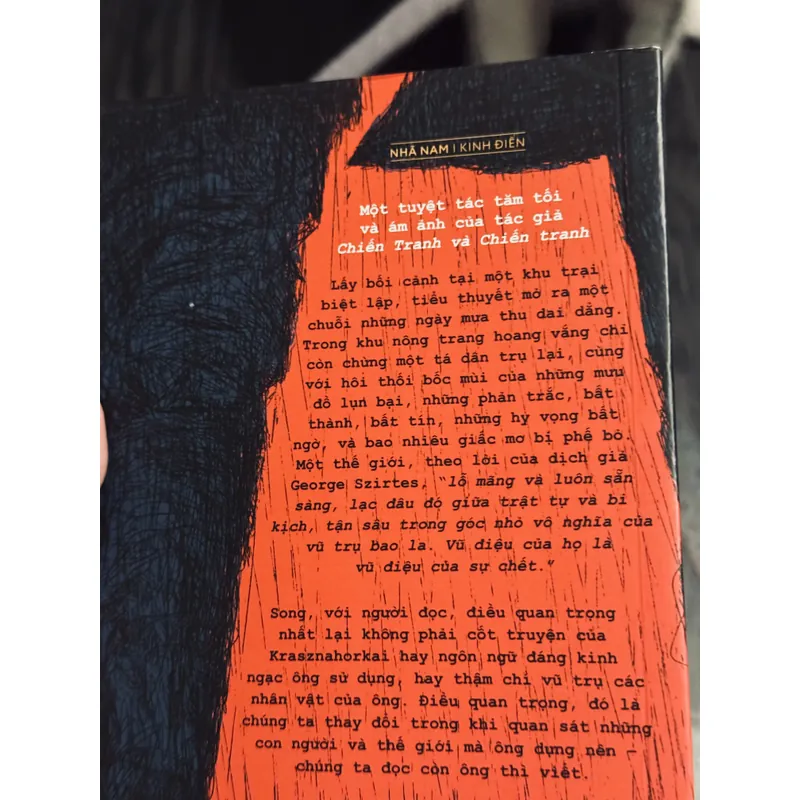 NHÃ NAM | KINH ĐIỂN
Một tuyệt tác tăm tối
và ám ảnh của tác giả
Chiến Tranh và Chiến tranh
Lấy bối cảnh tại một khu trại
biệt lập, tiểu thuyết mở ra một
chuỗi những ngày mưa thu dai dẳng.
Trong khu nông trang hoang vắng chỉ
còn chừng một tá dân trụ lại, cùng
với hôi thối bốc mùi của những mưu
đồ lụn bại, những phản trắc, bất
thành, bất tín, những hy vọng bất
ngờ, và bao nhiêu giấc mơ bị phế bỏ.
Một thế giới, theo lời của dịch giả
George Szirtes, "lỗ mãng và luôn sẵn
sàng, lạc đâu đó giữa trật tự và bi
kịch, tận sâu trong góc nhỏ vô nghĩa của
vũ trụ bao la. Vũ điệu của họ là
vũ điệu của sự chết."
Song, với người đọc, điều quan trọng
nhất lại không phải cốt truyện của
Krasznahorkai hay ngôn ngữ đáng kinh
ngạc ông sử dụng, hay thậm chí vũ trụ các
nhân vật của ông. Điều quan trọng, đó là
chúng ta thay đổi trong khi quan sát những
con người và thế giới mà ông dựng nên –
chúng ta đọc còn ông thì viết.